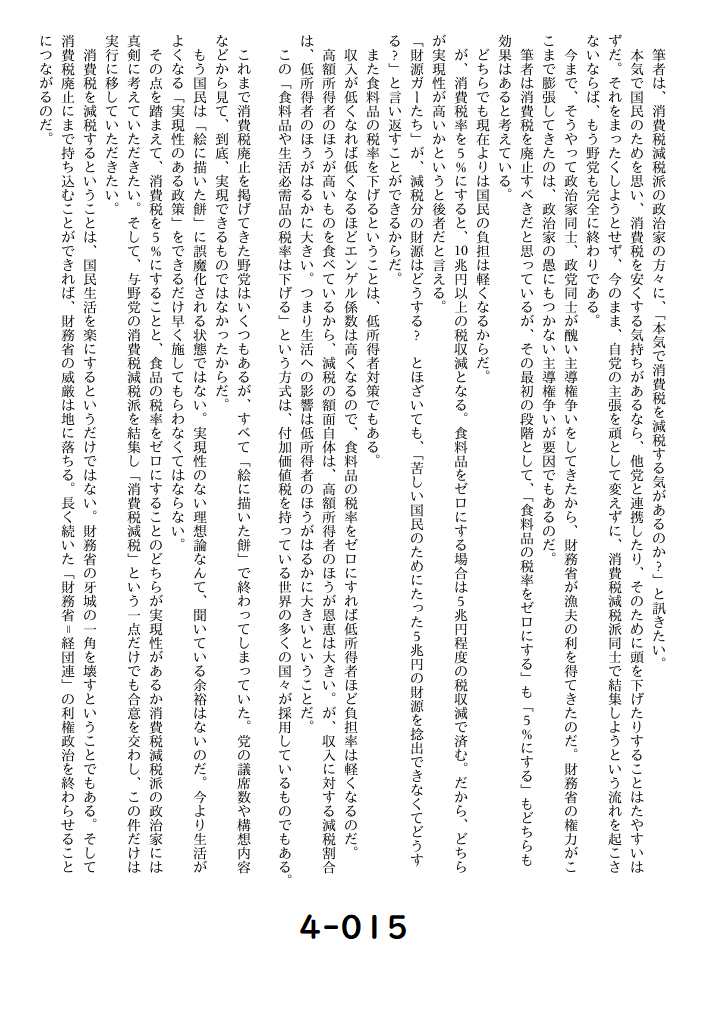 筆者は、消費税減税派の政治家の方々に、「本気で消費税を減税する気があるのか？」と訊きたい。
本気で国民のためを思い、消費税を安くする気持ちがあるなら、他党と連携したり、そのために頭を下げたりすることはたやすいは
ずだ。それをまったくしようとせず、今のまま、自党の主張を頑として変えずに、消費税減税派同士で結集しようという流れを起こさ
ないならば、もう野党も完全に終わりである。
今まで、そうやって政治家同士、政党同士が醜い主導権争いをしてきたから、財務省が漁夫の利を得てきたのだ。財務省の権力がこ
こまで膨張してきたのは、政治家の愚にもつかない主導権争いが要因でもあるのだ。
筆者は消費税を廃止すべきだと思っているが、その最初の段階として、「食料品の税率をゼロにする」も「５％にする」もどちらも
効果はあると考えている。
どちらでも現在よりは国民の負担は軽くなるからだ。
が、消費税率を５％にすると、10兆円以上の税収減となる。食料品をゼロにする場合は５兆円程度の税収減で済む。だから、どちら
が実現性が高いかというと後者だと言える。
「財源ガーたち」が、減税分の財源はどうする？　とほざいても、「苦しい国民のためにたった５兆円の財源を捻出できなくてどうす
る？」と言い返すことができるからだ。
また食料品の税率を下げるということは、低所得者対策でもある。
収入が低くなれば低くなるほどエンゲル係数は高くなるので、食料品の税率をゼロにすれば低所得者ほど負担率は軽くなるのだ。
高額所得者のほうが高いものを食べているから、減税の額面自体は、高額所得者のほうが恩恵は大きい。が、収入に対する減税割合
は、低所得者のほうがはるかに大きい。つまり生活への影響は低所得者のほうがはるかに大きいということだ。
この「食料品や生活必需品の税率は下げる」という方式は、付加価値税を持っている世界の多くの国々が採用しているものでもある。
これまで消費税廃止を掲げてきた野党はいくつもあるが、すべて「絵に描いた餅」で終わってしまっていた。党の議席数や構想内容
などから見て、到底、実現できるものではなかったからだ。
もう国民は「絵に描いた餅」に誤魔化される状態ではない。実現性のない理想論なんて、聞いている余裕はないのだ。今より生活が
よくなる「実現性のある政策」をできるだけ早く施してもらわなくてはならない。
その点を踏まえて、消費税を５％にすることと、食品の税率をゼロにすることのどちらが実現性があるか消費税減税派の政治家には
真剣に考えていただきたい。そして、与野党の消費税減税派を結集し「消費税減税」という一点だけでも合意を交わし、この件だけは
実行に移していただきたい。
消費税を減税するということは、国民生活を楽にするというだけではない。財務省の牙城の一角を壊すということでもある。そして
消費税廃止にまで持ち込むことができれば、財務省の威厳は地に落ちる。長く続いた「財務省＝経団連」の利権政治を終わらせること
につながるのだ。
4-015